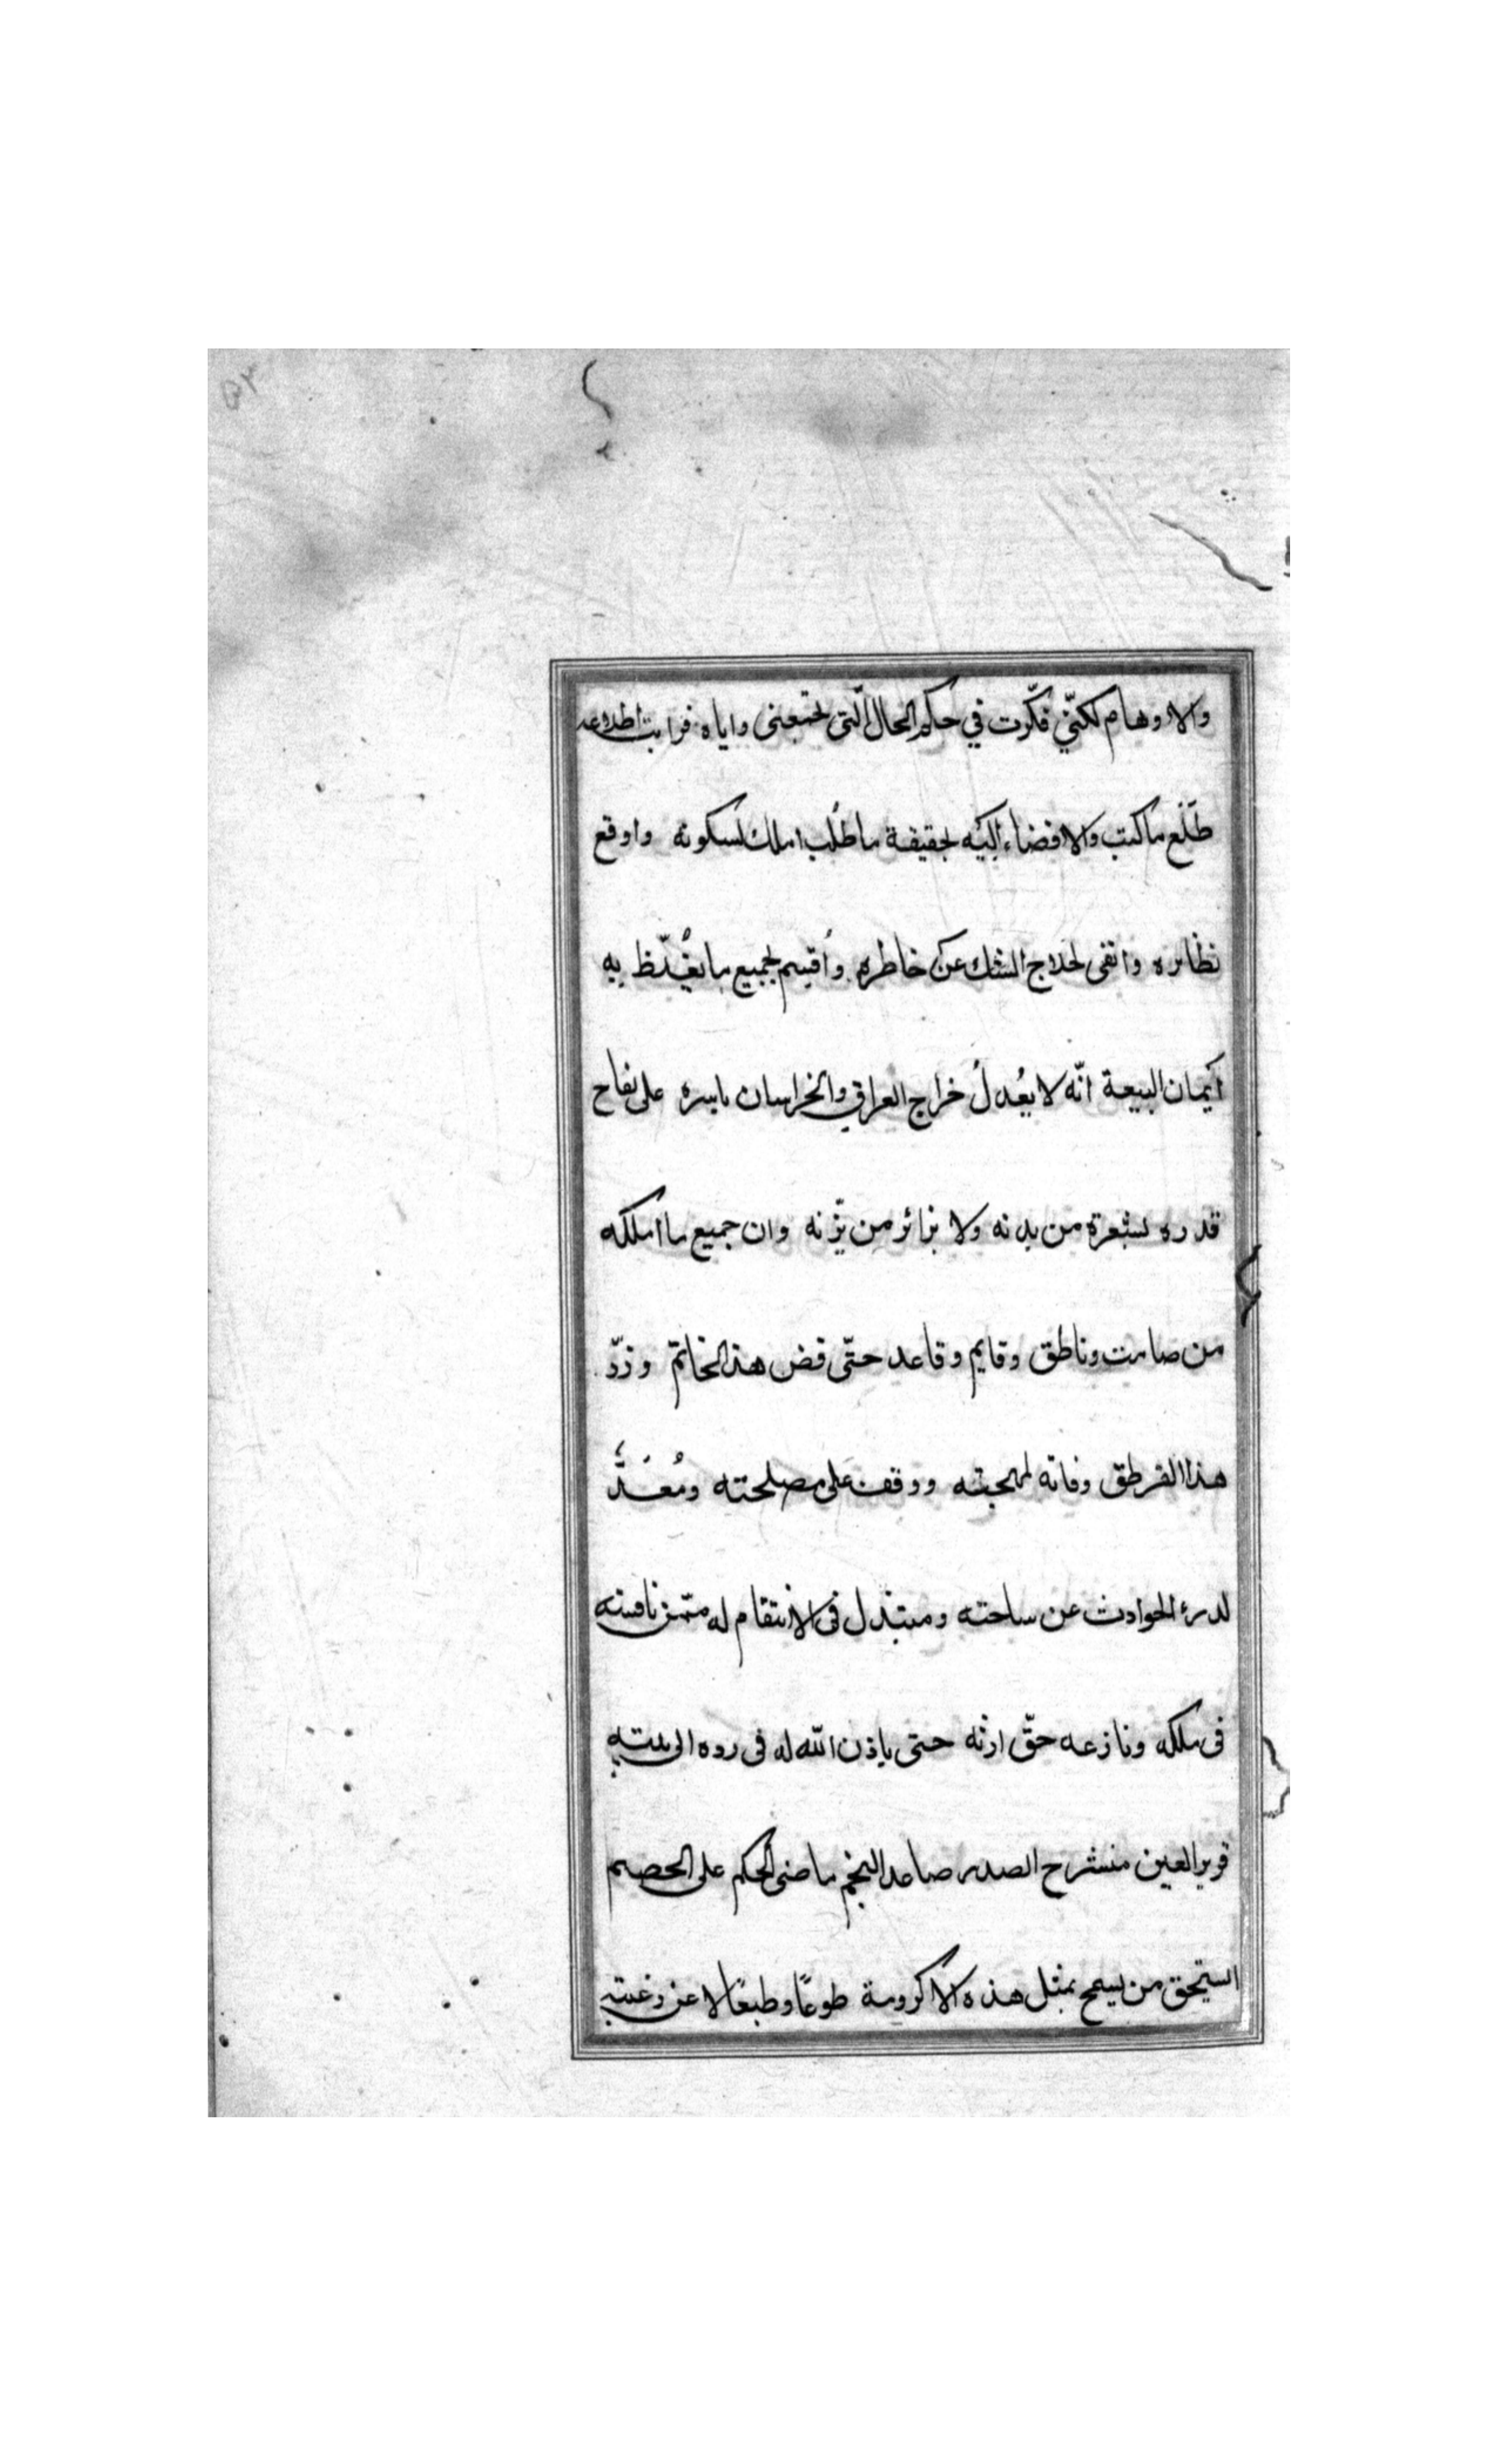 والاوهام لكنّني فكّرت في حكم الحال الّتى تجمعنى واياه فرايت اطلاعه
طلع ما كتب والافضاء اليه بحقيقة ما طلب املك لسكونه واوقع
نظائره وانفى لخلاج الشك عن خاطره واُقسم بجميع ما يغُلّظ به
ايمان البيعة انّه لا يعُدلُ خراج العراق والخراسان باسره على نفاح
قدره لشعرة من بدنه ولا بزائر من بزنه وان جميع ما املكه
من صامت وناطق وقايم وقاعد حتّى فض هذا الخاتم وزرّ
هذا القرطق وفاته لمهجته ووقف على مصلحته ومُعَدٌّ
لدرء الحوادث عن ساحته ومبتذل فى الانتقام له ممّن نافسه
فى ملكه ونازعه حقّ ارثه حتى ياذن الله له فى رده الى بيته
قرير العين منشرح الصدر صاعد النجم ماضى الحكم على الخصم
استيحق من يسمح بمثل هذه الاكرومة طوعًا وطبعًا لا عن رغبته